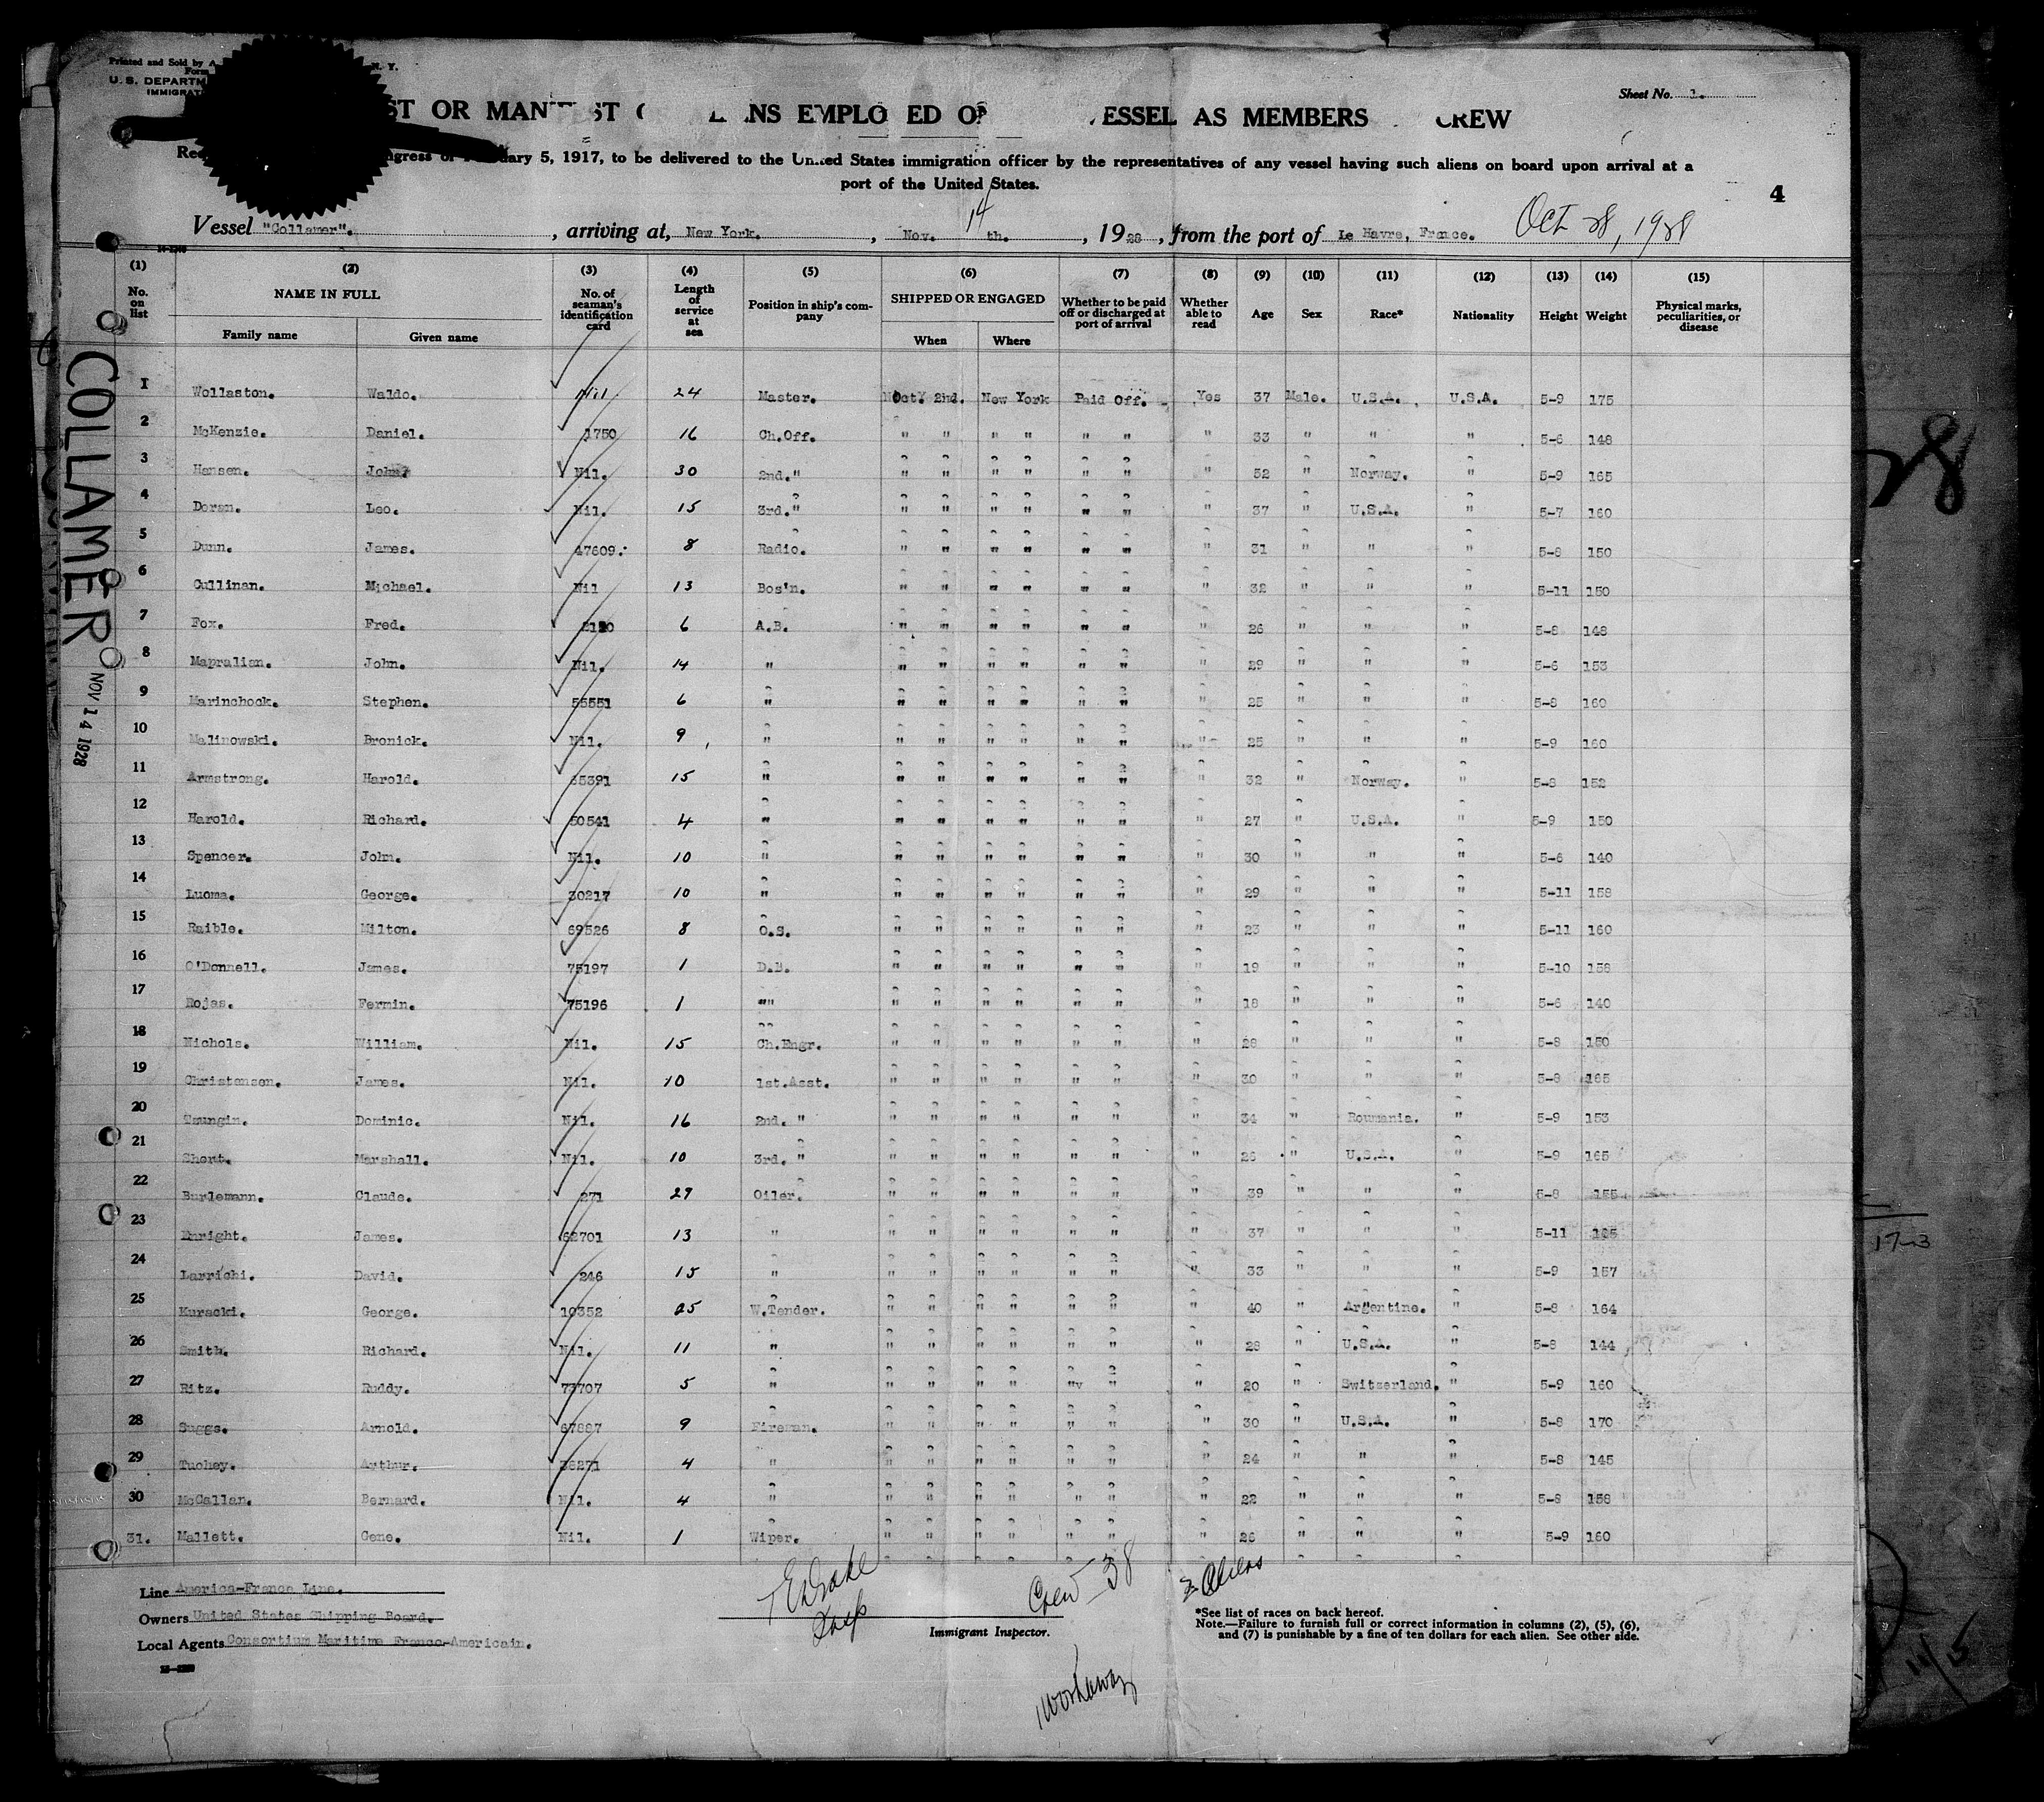 Printed and Sold by A N. Y.
Form
U. S. DEPARTM
IMMIGRAT
Sheet No. 1.
ST OR MANIFEST O ENS EMPLOYED ON ESSEL AS MEMBERS CREW
Req ngress of February 5, 1917, to be delivered to the United States immigration officer by the representatives of any vessel having such aliens on board upon arrival at a
port of the United States.
4
Vessel "Collamer". , arriving at, New York. , Nov. 14 th. , 1928 , from the port of Le Havre, France. Oct 28, 1928
(1) (2) (3) (4) (5) (6) (7) (8) (9) (10) (11) (12) (13) (14) (15)
No. on list NAME IN FULL Family name Given name No. of seaman's identification card Length of service at sea Position in ship's company SHIPPED OR ENGAGED When Where Whether to be paid off or discharged at port of arrival Whether able to read Age Sex Race* Nationality Height Weight Physical marks, peculiarities, or disease
1 Wollaston. Waldo. Nil 24 Master. Oct 2nd. New York Paid Off. Yes 37 Male. U.S.A. U.S.A. 5-9 175
2 McKenzie. Daniel. 1750 16 Ch.Off. " " " " " " " 33 " " " 5-6 148
3 Hansen. John. Nil. 30 2nd." " " " " " " " 52 " Norway. " 5-9 165
4 Doran. Leo. Nil. 15 3rd." " " " " " " " 37 " U.S.A. " 5-7 160
5 Dunn. James. 47609. 8 Radio. " " " " " " " 31 " " " 5-8 150
6 Cullinan. Michael. Nil 13 Bos'n. " " " " " " " 32 " " " 5-11 150
7 Fox. Fred. 6 A.B. " " " " " " " 26 " " " 5-8 148
8 Mapralian. John. Nil. 14 " " " " " " " " 29 " " " 5-6 153
9 Marinchock. Stephen. 55551 6 " " " " " " " " 25 " " " 5-8 160
10 Malinowski. Bronick. Nil. 9 " " " " " " " " 25 " " " 5-9 160
11 Armstrong. Harold. 15 " " " " " " " " 32 " Norway. " 5-8 152
12 Harold. Richard. 50541 4 " " " " " " " " 27 " U.S.A. " 5-9 150
13 Spencer. John. Nil. 10 " " " " " " " " 30 " " " 5-6 140
14 Luoma. George. 30217 10 " " " " " " " " 29 " " " 5-11 158
15 Raible. Milton. 69526 8 O.S. " " " " " " " 23 " " " 5-11 160
16 O'Donnell. James. 75197 1 D.B. " " " " " " " 19 " " " 5-10 158
17 Rojas. Fermin. 75196 1 "" " " " " " " " 18 " " " 5-6 140
18 Nichols. William. Nil. 15 Ch.Engr. " " " " " " " 28 " " " 5-8 150
19 Christensen. James. Nil. 10 1st.Asst. " " " " " " " 30 " " " 5-8 165
20 Tsungin. Dominic. Nil. 16 2nd. " " " " " " " " 34 " Roumania. " 5-9 153
21 Short. Marshall. Nil. 10 3rd. " " " " " " " " 26 " U.S.A. " 5-9 165
22 Burlemann. Claude. 271 29 Oiler. " " " " " " " 39 " " " 5-8 155
23 Enright. James. 62701 13 " " " " " " " " 37 " " " 5-11
24 Larrichi. David. 246 15 " " " " " " " " 33 " " " 5-9 157
25 Kuracki. George. 10352 25 W.Tender. " " " " " " " 40 " Argentine. " 5-8 164
26 Smith. Richard. Nil. 11 " " " " " " " " 28 " U.S.A. " 5-8 144
27 Ritz. Ruddy. 73707 5 " " " " " "v " " 20 " Switzerland. " 5-9 160
28 Suggs. Arnold. 67887 9 Fireman. " " " " " " " 30 " U.S.A. " 5-8 170
29 Tuohey. Arthur. 4 " " " " " " " " 24 " " " 5-8 145
30 McCallan. Bernard. Nil. 4 " " " " " " " " 22 " " " 5-8 158
31. Mallett. Gene. Nil. 1 Wiper. " " " " " " " 26 " " " 5-9 160
COLLAMER
NOV 14 1928
28
Line America-France Line.
Owners United States Shipping Board.
Local Agents Consortium Maritime Franco-Americain.
T E Drake
Insp
Immigrant Inspector.
Crew 38
2 Aliens
1 Workaway
*See list of races on back hereof.
Note.—Failure to furnish full or correct information in columns (2), (5), (6),
and (7) is punishable by a fine of ten dollars for each alien. See other side.
1723
11/15